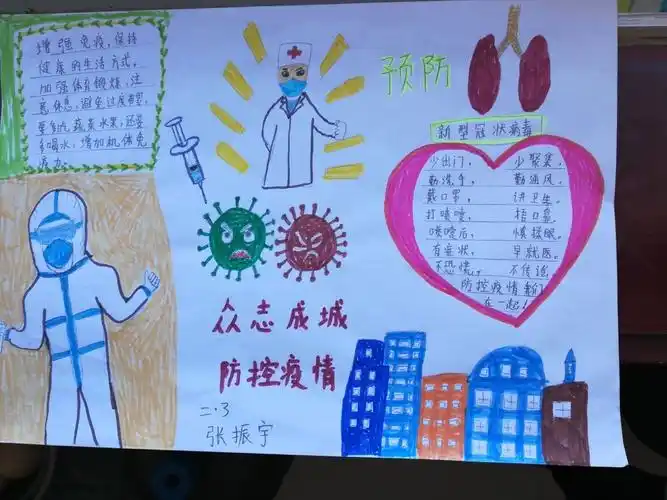 增强免疫,保持
健康的生活方式,
加强体育锻炼,注
意休息,避免过度劳累,
要多吃蔬菜水果,还要
多喝水,增加机体免
疫力。
预防
新型冠状病毒
少出门, 少聚集,
勤洗手, 勤通风。
戴口罩, 讲卫生。
打喷嚏, 捂口鼻
喷嚏后, 慎揉眼。
有症状, 早就医。
不恐慌。 不传谣
防控疫情我们
在一起!
众志成城
防控疫情
二.3
张振宇